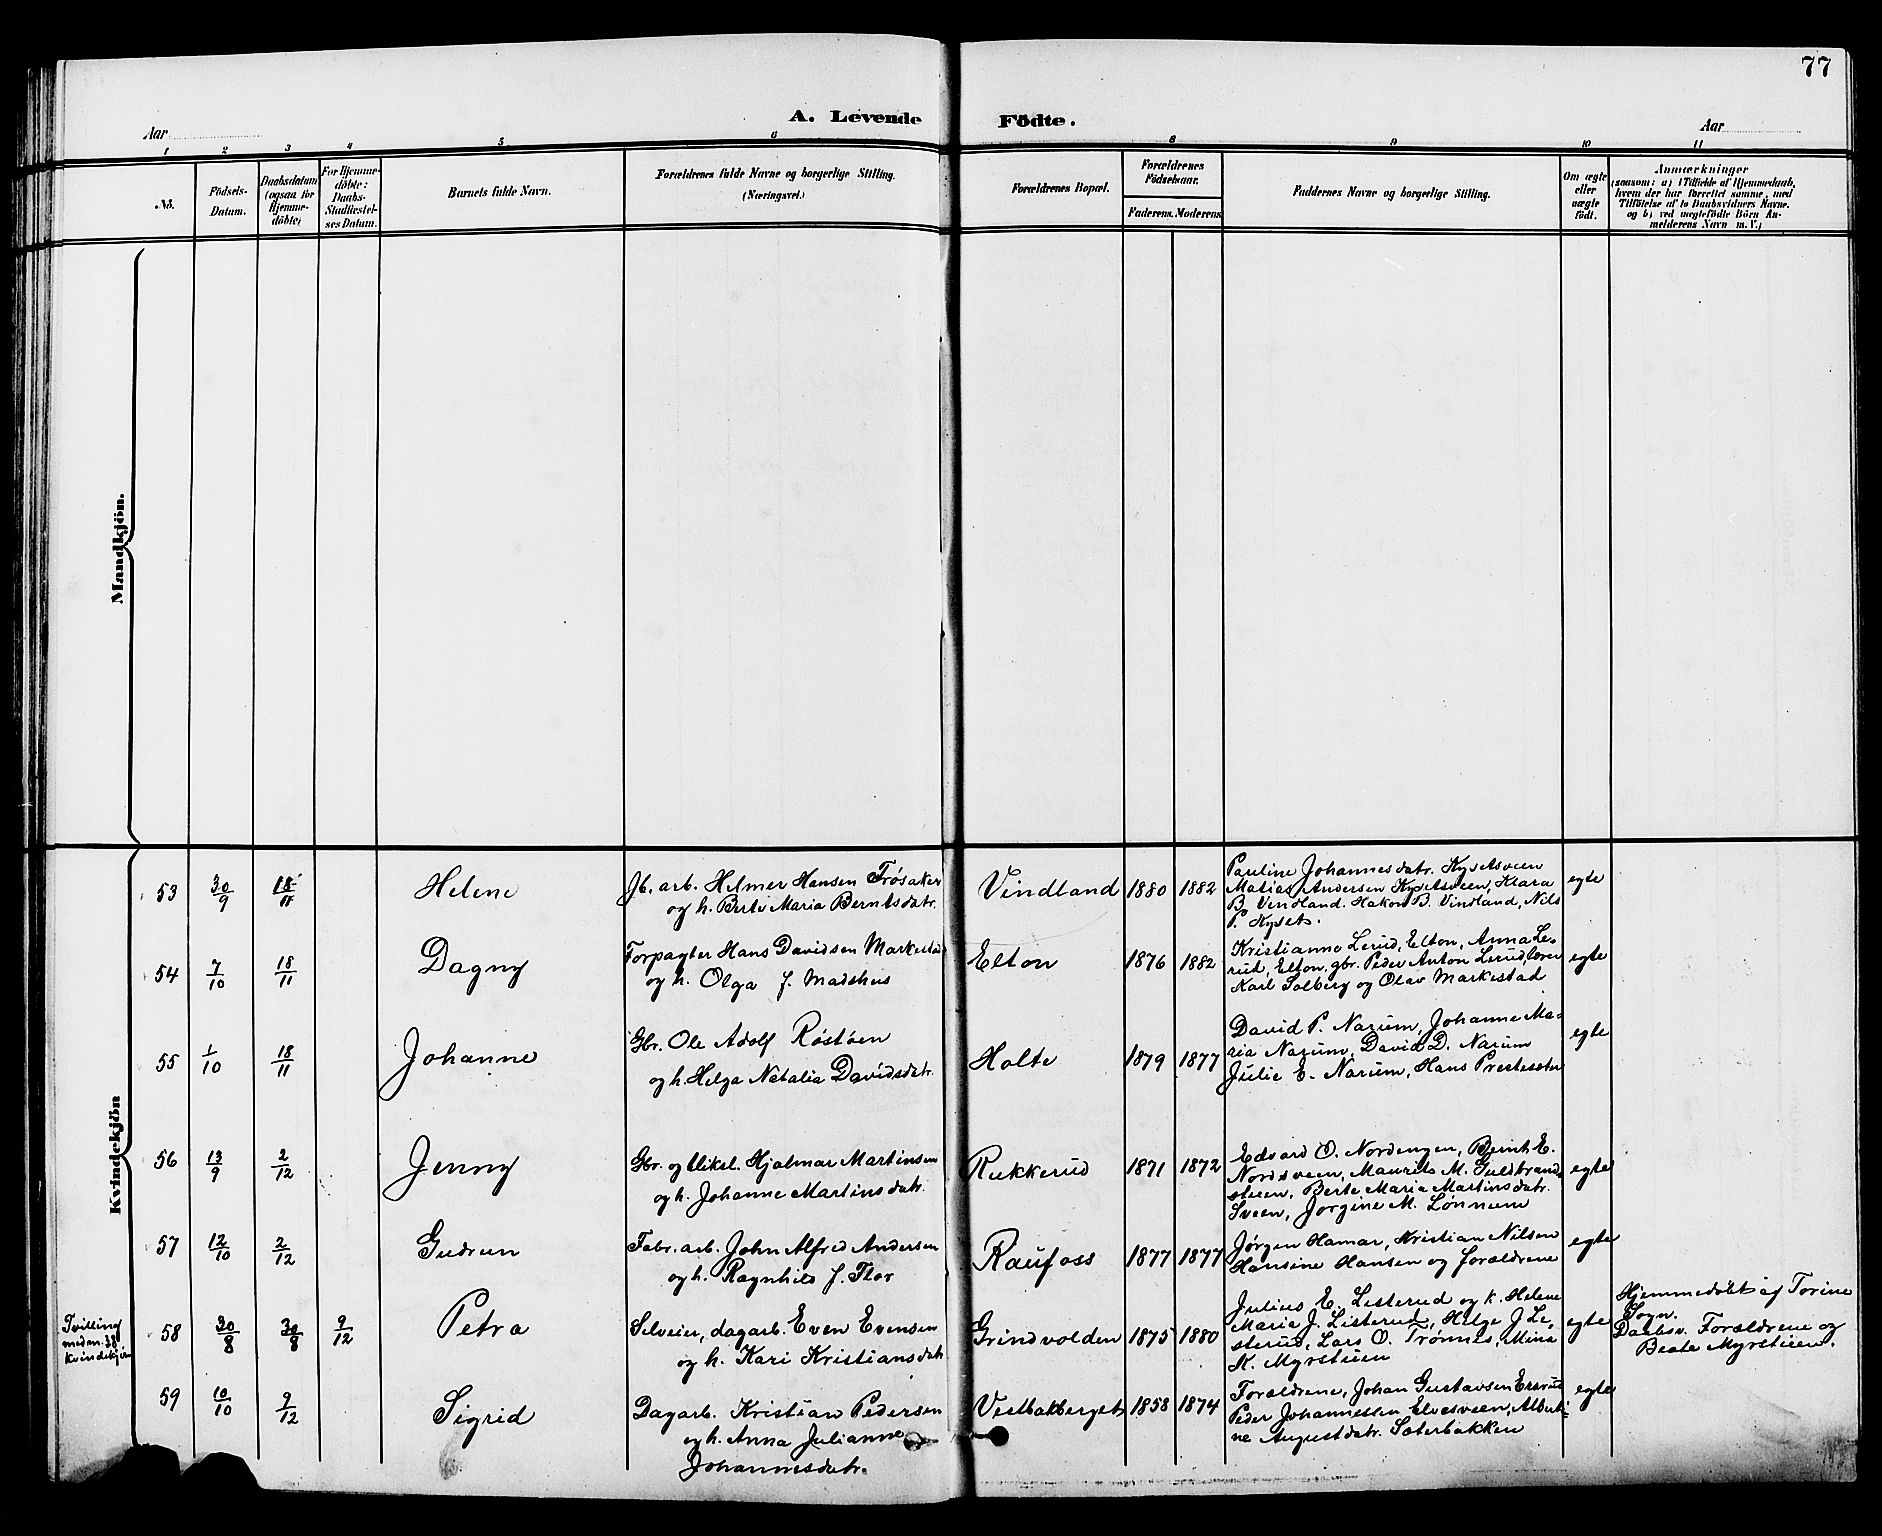 77
A. Levende Födte.
Aar
Aar
1 2 3 4 5 6 8 9 10 11
No.
Födsels-
Datum.
Daabsdatum
(ogsaa for
Hjemme-
döbte)
For Hjemme-
döbte:
Daabs-
Stadfæstel-
ses Datum.
Barnets fulde Navn.
Forældrenes fulde Navne og borgerlige Stilling.
(Næringsvei.)
Forældrenes Bopæl.
Forældrenes
Fødselsaar.
Faderens. Moderens
Faddernes Navne og borgerlige Stilling.
Om ægte
eller
uægte
födt.
Anmærkninger
(saasom: a) i Tilfælde af Hjemmedaab,
hvem der har forrettet samme, med
Tilföielse af to Daabsvidners Navne.
og b) ved uægtefödte Börn An-
melderens Navn m. V.)
Mandkjön.
Kvindekjön
53 30/9 18/11 Helene
Jb. arb. Helmer Hansen Frøsaker
og h. Berte Maria Berntsdatr.
Vindland 1880 1882
Pauline Johannesdatr. Kysetsveen
Matias Andersen Kysetsveen, Klara
B. Vindland. Hakon B. Vindland, Nils
P. Kyset.
egte
54 7/10 18/11 Dagny
Forpagter Hans Davidsen Markestad
og h. Olga f. Madshus
Elton 1876 1882
Kristianne Lerud, Elton, Anna Le-
rud, Elton, gbr. Peder Anton Lerud, lærer
Karl Solberg og Olav Markestad
egte
55 1/10 18/11 Johanne
Gbr. Ole Adolf Røstøen
og h. Helga Natalia Davidsdatr.
Holte 1879 1877
David P. Narum, Johanne Ma-
ria Narum, David D. Narum
Julie E. Narum, Hans Prestesæter
egte
56 13/9 2/12 Jenny
Gbr. og bliksl. Hjalmar Martinsen
og h. Johanne Martinsdatr.
Rukkerud 1871 1872
Edvard O. Nordengen, Bernt E.
Nordsveen, Maurits M. Guldbrand-
stuen, Berte Maria Martinsdatr.
Sveen, Jørgine M. Lønnum
egte
57 12/10 2/12 Gudrun
Fabr. arb. John Alfred Andersen
og h. Ragnhild f. Flor
Raufoss 1877 1877
Jørgen Hamar, Kristian Nilsen
Hansine Hansen og forældrene
egte
Tvilling
med n. 38
kvindekjøn
58 30/8 30/8 9/12 Petra
Selveier, dagarb. Even Evensen
og h. Kari Kristiansdatr
Grindvolden 1875 1880
Julius E. Listerud og k. Helene
Maria J. Listerud, Helge J. Le-
sterud, Lars O. Trønnes, Mina
K. Myrstuen
egte
Hjemmedøbt af Torine
Sogn.
Daabsv. Forældrene og
Beate Myrstuen.
59 10/10 9/12 Sigrid
Dagarb. Kristian Pedersen
og h. Anna Julianne
Johannesdatr.
Vestbakberget 1858 1874
Forældrene, Johan Gustavsen Ersrud
Peder Johannessen Elvesveen, Alberti-
ne Augustdatr. Sæterbakken
egte